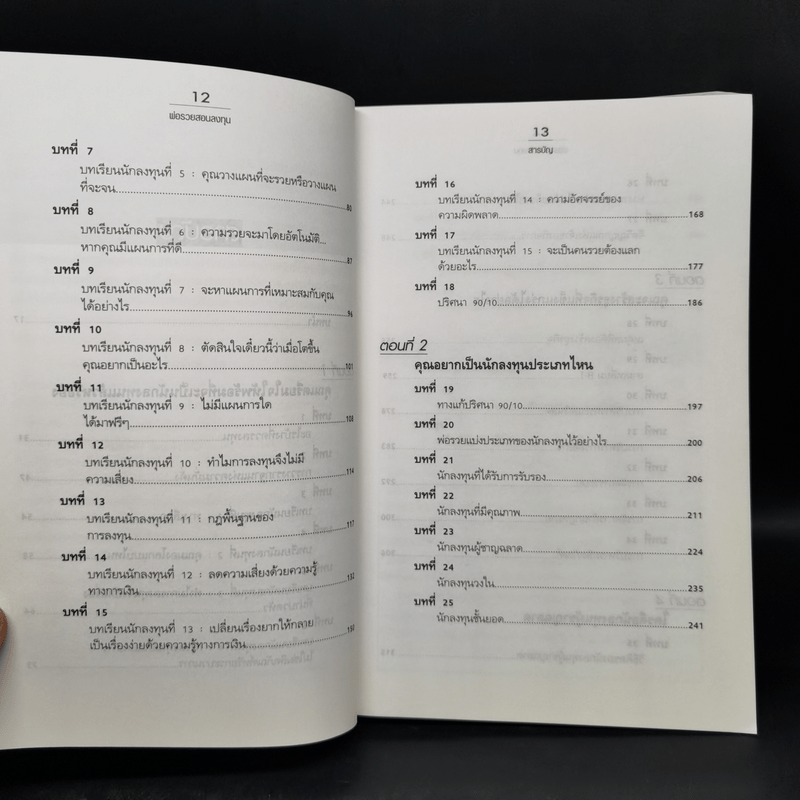 12
พ่อรวยสอนลงทุน
บทที่ 7
บทเรียนนักลงทุนที่ 5 : คุณวางแผนที่จะรวยหรือวางแผน
ที่จะจน 80
บทที่ 8
บทเรียนนักลงทุนที่ 6 : ความรวยจะมาโดยอัตโนมัติ...
หากคุณมีแผนการที่ดี 87
บทที่ 9
บทเรียนนักลงทุนที่ 7 : จะหาแผนการที่เหมาะสมกับคุณ
ได้อย่างไร 96
บทที่ 10
บทเรียนนักลงทุนที่ 8 : ตัดสินใจเดี๋ยวนี้ว่าเมื่อโตขึ้น
คุณอยากเป็นอะไร 101
บทที่ 11
บทเรียนนักลงทุนที่ 9 : ไม่มีแผนการใด
ได้มาฟรีๆ 108
บทที่ 12
บทเรียนนักลงทุนที่ 10 : ทำไมการลงทุนจึงไม่มี
ความเสี่ยง 114
บทที่ 13
บทเรียนนักลงทุนที่ 11 : กฎพื้นฐานของ
การลงทุน 117
บทที่ 14
บทเรียนนักลงทุนที่ 12 : ลดความเสี่ยงด้วยความรู้
ทางการเงิน 132
บทที่ 15
บทเรียนนักลงทุนที่ 13 : เปลี่ยนเรื่องยากให้กลาย
เป็นเรื่องง่ายด้วยความรู้ทางการเงิน
13
สารบัญ
บทที่ 16
บทเรียนนักลงทุนที่ 14 : ความอัศจรรย์ของ
ความผิดพลาด 168
บทที่ 17
บทเรียนนักลงทุนที่ 15 : จะเป็นคนรวยต้องแลก
ด้วยอะไร 177
บทที่ 18
ปริศนา 90/10 186
ตอนที่ 2
คุณอยากเป็นนักลงทุนประเภทไหน
บทที่ 19
ทางแก้ปริศนา 90/10 197
บทที่ 20
พ่อรวยแบ่งประเภทของนักลงทุนไว้อย่างไร 200
บทที่ 21
นักลงทุนที่ได้รับการรับรอง 206
บทที่ 22
นักลงทุนที่มีคุณภาพ 211
บทที่ 23
นักลงทุนผู้ชาญฉลาด 224
บทที่ 24
นักลงทุนวงใน 235
บทที่ 25
นักลงทุนชั้นยอด 241